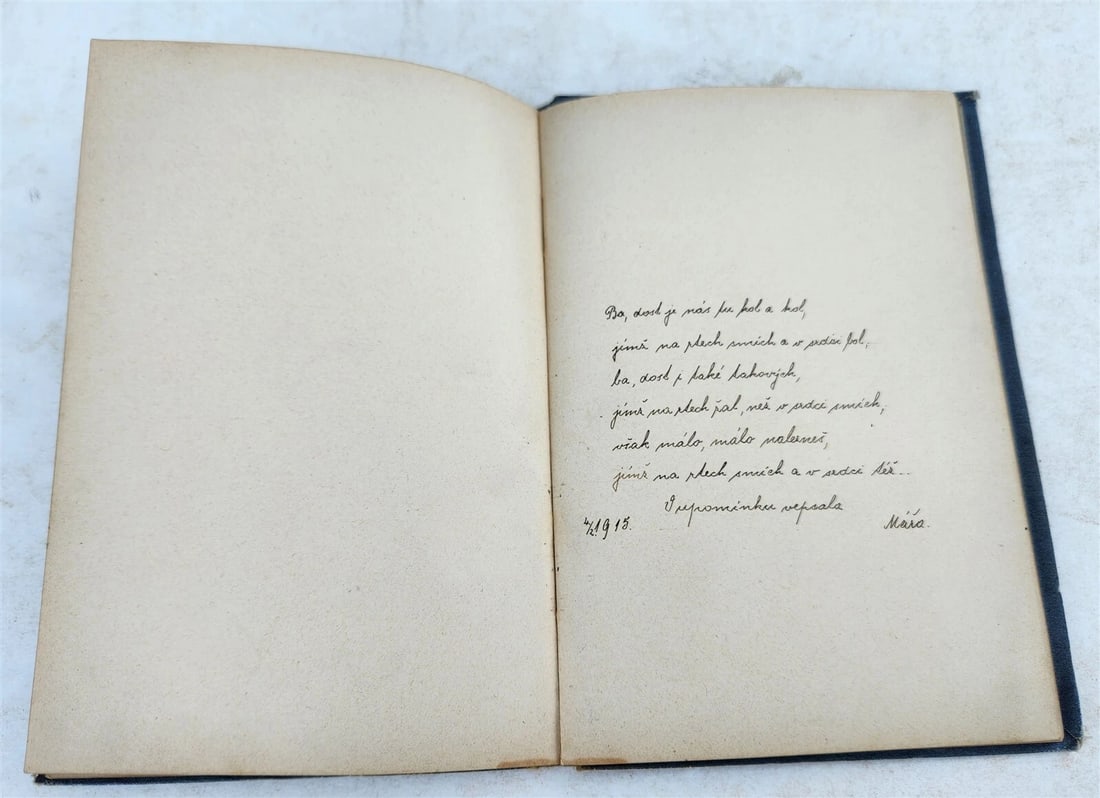 Ba, dost je nás tu kol a kol,
jimž na rtech smích a v srdci bol,
ba, dost i také takových,
jimž na rtech žal, než v srdci smích,
však málo, málo nalezneš,
jimž na rtech smích a v srdci též...
V upomínku vepsala
4/2. 1915. Máňa.